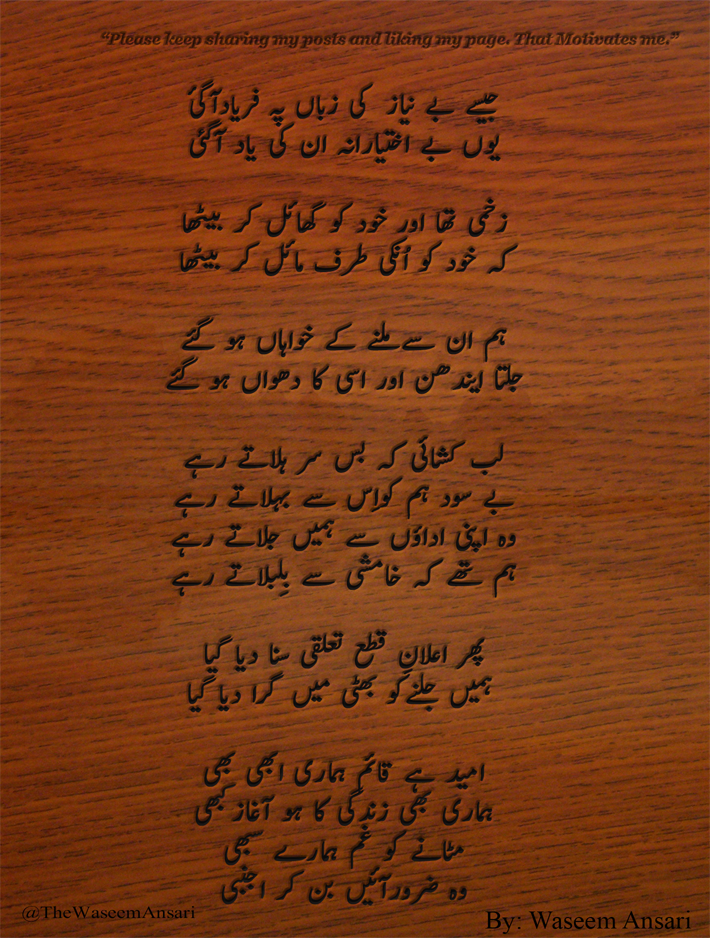 “Please keep sharing my posts and liking my page. That Motivates me.”
جیسے بے نیاز کی زباں پہ فریاد آگئ
یوں بے اختیارانہ ان کی یاد آگئ
زخمی تھا اور خود کو گھائل کر بیٹھا
کہ خود کو اُنکی طرف مائل کر بیٹھا
ہم ان سے ملنے کے خواہاں ہو گئے
جلتا ایندھن اور اسی کا دھواں ہو گئے
لب کشائی کہ بس سر ہلاتے رہے
بے سود ہم کو اِس سے بہلاتے رہے
وہ اپنی اداؤں سے ہمیں جلاتے رہے
ہم تھے کہ خامشی سے بِلبلاتے رہے
پھر اعلانِ قطع تعلقی سنا دیا گیا
ہمیں جلنے کو بھٹی میں گرا دیا گیا
امید ہے قائم ہماری ابھی بھی
ہماری بھی زندگی کا ہو آغاز کبھی
مٹانے کو غم ہمارے سبھی
وہ ضرور آئیں بن کر اجنبی
@TheWaseemAnsari
By: Waseem Ansari